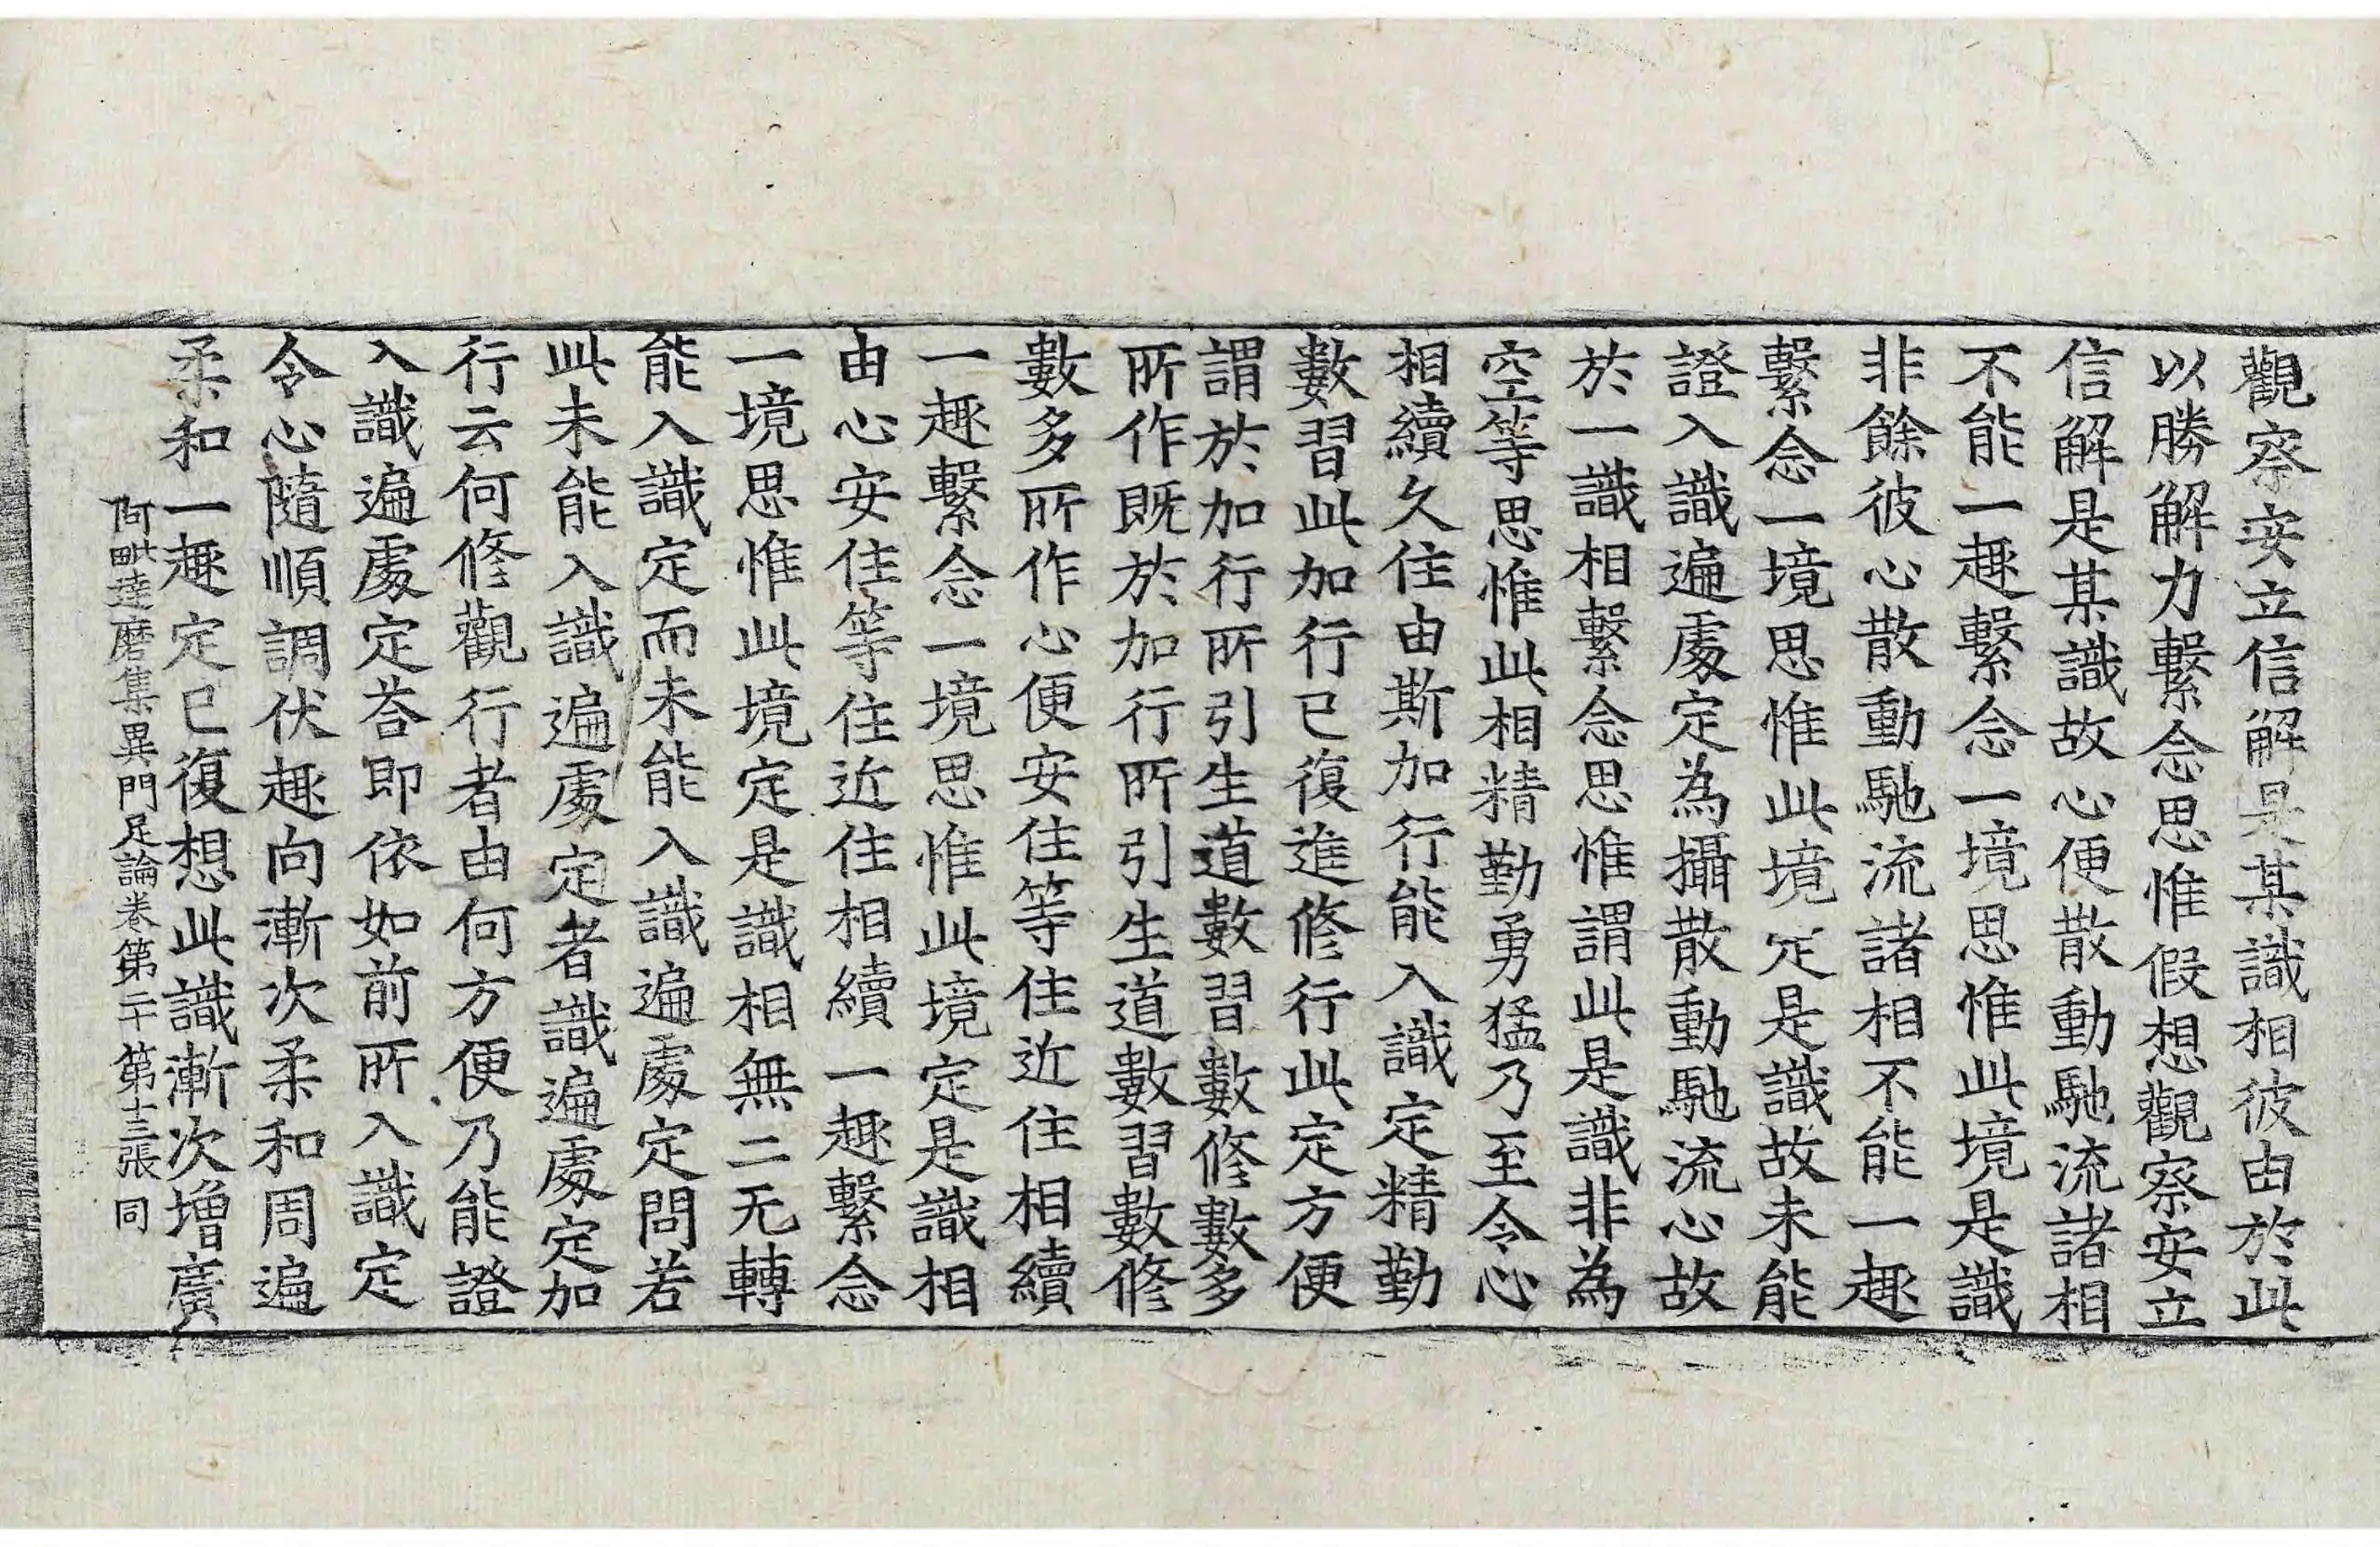 觀察安立信解是某識相彼由於此
以勝解力繫念思惟假想觀察安立
信解是某識故心便散動馳流諸相
不能一趣繫念一境思惟此境是識
非餘彼心散動馳流諸相不能一趣
繫念一境思惟此境定是識故未能
證入識遍處定為攝散動馳流心故
於一識相繫念思惟謂此是識非為
空等思惟此相精勤勇猛乃至令心
相續久住由斯加行能入識定精勤
數習此加行已復進修行此定方便
謂於加行所引生道數習數修數多
所作既於加行所引生道數習數修
數多所作心便安住等住近住相續
一趣繫念一境思惟此境定是識相
由心安住等住近住相續一趣繫念
一境思惟此境定是識相無二无轉
能入識定而未能入識遍處定問若
此未能入識遍處定者識遍處定加
行云何修觀行者由何方便乃能證
入識遍處定荅即依如前所入識定
令心隨順調伏趣向漸次柔和周遍
柔和一趣定已復想此識漸次增廣
阿毗達磨集異門足論卷第二十 第十三張 同